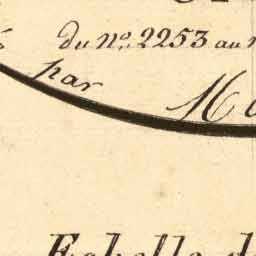 du nº. 2253 au
par
Echelle d